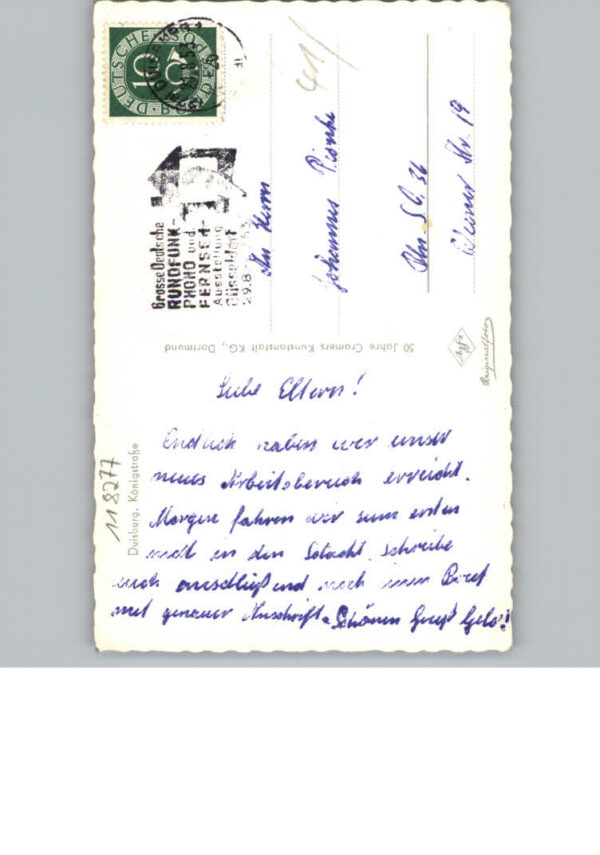 DEUTSCHE BUNDESPOST
10
Grosse Deutsche
RUNDFUNK-
PHONO und
FERNSEH-
Ausstellung
Düsseldorf
29.8.
An Herrn
Johannes
Bln. SO. 36
Wiener Str. 19
50 Jahre Cramers Kunstanstalt KG., Dortmund
Agfa
Originalfoto
118277
Duisburg, Königstraße
Liebe Eltern!
Endlich haben wir unser
neues Arbeitsbereich erreicht.
Morgen fahren wir zum ersten
mal in den Schacht. schreibe
euch anschließend noch einen Brief
mit genauer Anschrift. Schönen Gruß